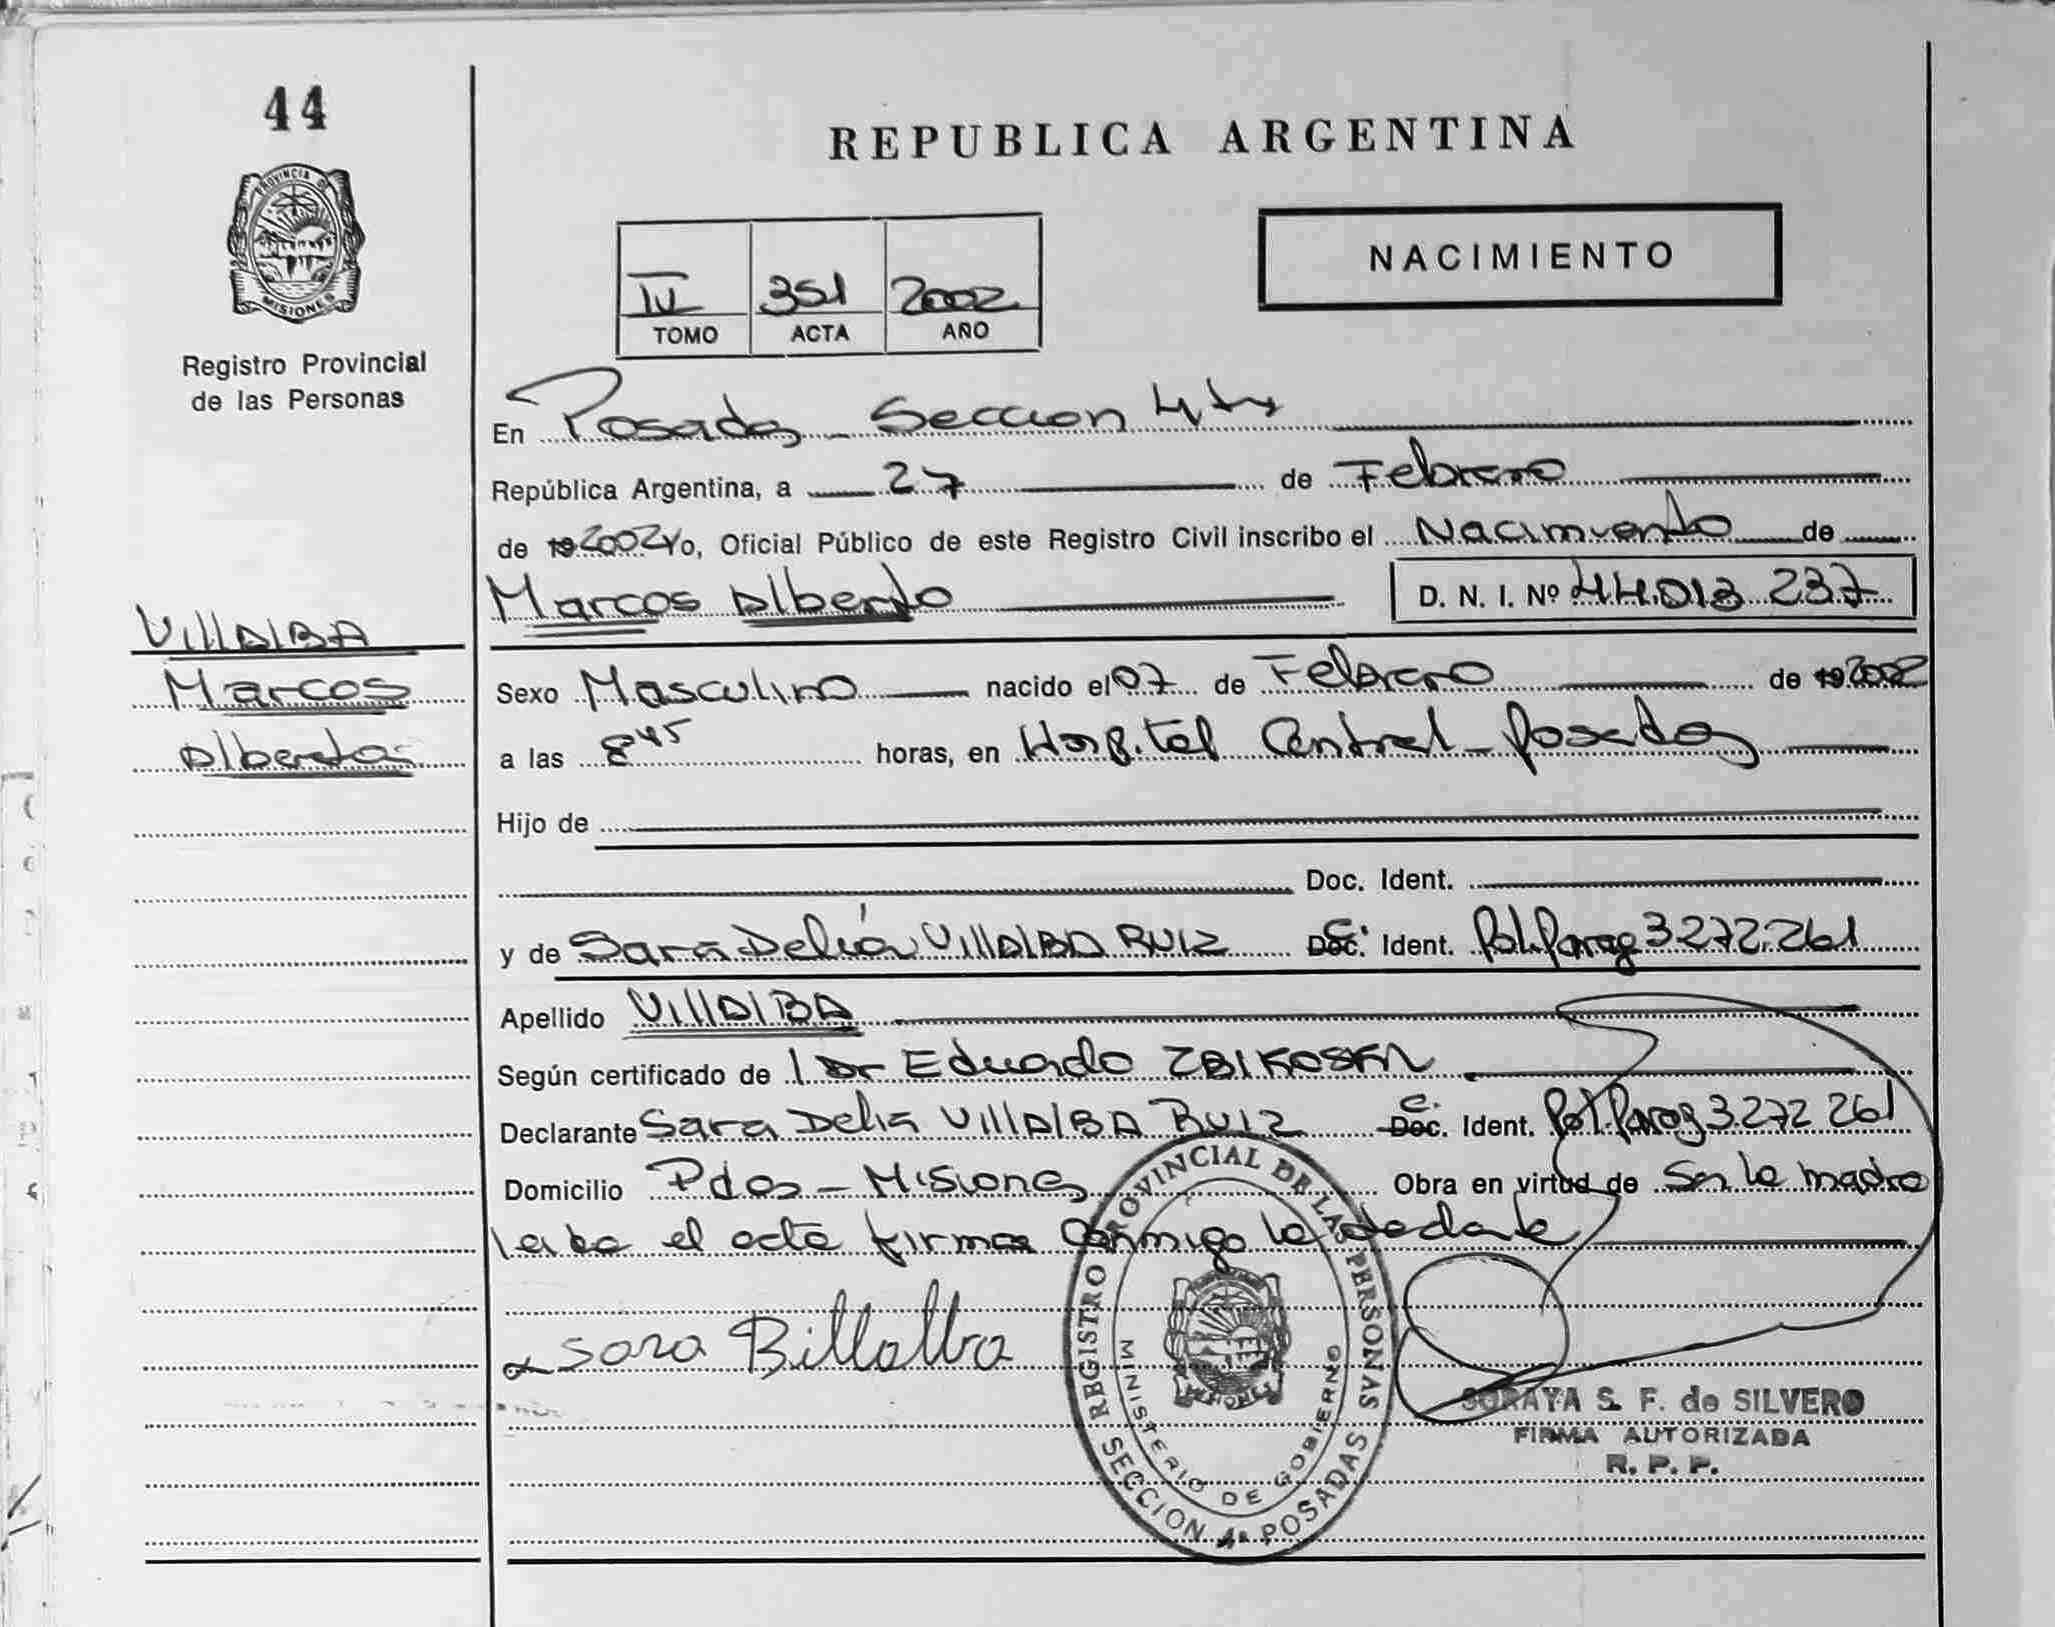 44
PROVINCIA DE
MISIONES
Registro Provincial
de las Personas
REPUBLICA ARGENTINA
NACIMIENTO
IV 351 2002
TOMO ACTA AÑO
En Posadas - Seccion 4ta
República Argentina, a 27 de Febrero
de 19 2002 Yo, Oficial Público de este Registro Civil inscribo el Nacimiento de
Marcos Alberto D. N. I. Nº 44.013.237
VIllAlBA
Marcos
Alberto
Sexo Masculino nacido el 07 de Febrero de 19 2002
a las 8 45 horas, en Hospital Central - Posadas
Hijo de
Doc. Ident.
y de Sara Delia VIllAlBA RUIZ Doc. C. Ident. Pol. Parag 3.272.261
Apellido VIllAlBA
Según certificado de Dr Eduardo
Declarante Sara Delia VIllAlBA RUIZ Doc. C. Ident. Pol. Parag 3.272.261
Domicilio Pdas - Misiones Obra en virtud de Ser la madre
el acta firma Conmigo la
Sara Billalba
REGISTRO PROVINCIAL DE LAS PERSONAS
MINISTERIO DE GOBIERNO
MISIONES
SECCION 4a POSADAS
SORAYA S. F. de SILVERO
FIRMA AUTORIZADA
R. P. P.